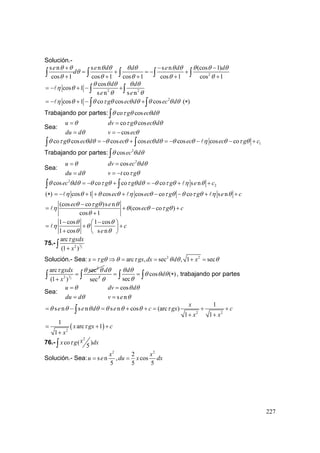 Solución.-
∫ (senθ + θ)/(cosθ + 1) dθ = ∫ senθdθ/(cosθ + 1) + ∫ θdθ/(cosθ + 1) = −∫ −senθdθ/(cosθ + 1) + ∫ θ(cosθ − 1)dθ/(cos²θ + 1)
= −ℓη|cosθ + 1| − ∫ θcosθdθ/sen²θ + ∫ θdθ/sen²θ
= −ℓη|cosθ + 1| − ∫ θcoτgθcosecθdθ + ∫ θcosec²θdθ (∗)
Trabajando por partes: ∫ θcoτgθcosecθdθ
Sea: u = θ dv = coτgθcosecθdθ
du = dθ v = −cosecθ
∫ θcoτgθcosecθdθ = −θcosecθ + ∫ cosecθdθ = −θcosecθ − ℓη|cosecθ − coτgθ| + c₁
Trabajando por partes: ∫ θcosec²θdθ
Sea: u = θ dv = cosec²θdθ
du = dθ v = −coτgθ
∫ θcosec²θdθ = −θcoτgθ + ∫ coτgθdθ = −θcoτgθ + ℓη|senθ| + c₂
(∗) = −ℓη|cosθ + 1| + θcosecθ + ℓη|cosecθ − coτgθ| − θcoτgθ + ℓη|senθ| + c
= ℓη|(cosecθ − coτgθ)senθ/(cosθ + 1)| + θ(cosecθ − coτgθ) + c
= ℓη|(1 − cosθ)/(1 + cosθ)| + θ((1 − cosθ)/senθ) + c
75.- ∫ arcτgxdx/(1 + x²)^(3/2)
Solución.- Sea: x = τgθ ⇒ θ = arcτgx, dx = sec²θdθ, √(1 + x²) = secθ
∫ arcτgxdx/(1 + x²)^(3/2) = ∫ θsec²θdθ/sec³θ = ∫ θdθ/secθ = ∫ θcosθdθ (∗), trabajando por partes
Sea: u = θ dv = cosθdθ
du = dθ v = senθ
= θsenθ − ∫ senθdθ = θsenθ + cosθ + c = (arcτgx) x/√(1 + x²) + 1/√(1 + x²) + c
= 1/√(1 + x²) (x arcτgx + 1) + c
76.- ∫ x coτg(x²/5)dx
Solución.- Sea: u = sen x²/5, du = 2/5 x cos x²/5 dx
227